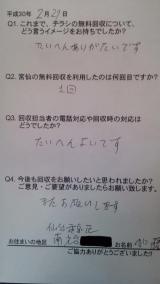 平成30年 2月27日
Q1. これまで、チラシの無料回収について、
どう言うイメージをお持ちでしたか?
たいへんありがたいです
Q2. 宮仙の無料回収を利用したのは何回目ですか?
1回
Q3. 回収担当者の電話対応や回収時の対応は
どうでしたか?
たいへんよいです
Q4. 今後も回収をお願いしたいと思われましたか?
ご意見・ご要望がありましたらお願い致します。
またお願いします
仙台市
お住まいの地区
お名前
ご協力ありがとうございました!!